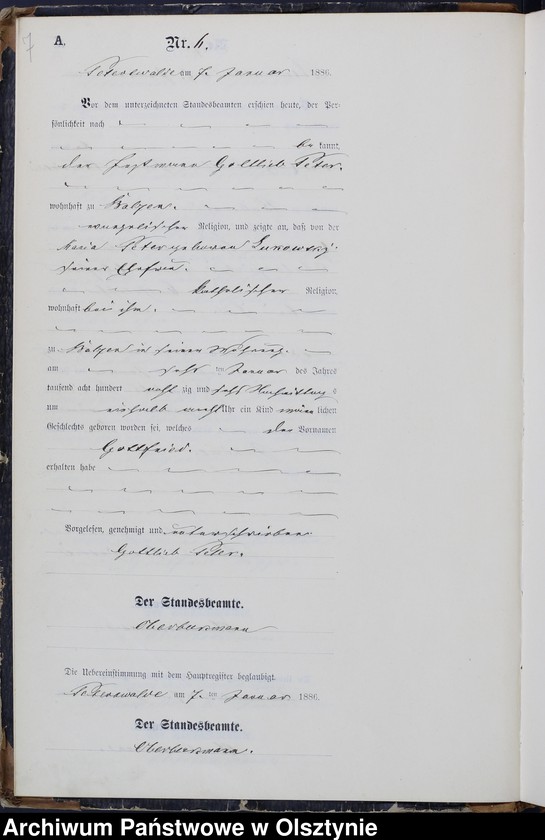 7
A.
Nr. 6.
Peterswalde am 7. Januar 1886.
Vor dem unterzeichneten Standesbeamten erschien heute, der Per-
sönlichkeit nach
be kannt,
der Gottlieb Peter.
wohnhaft zu
evangelischer Religion, und zeigte an, daß von der
Maria Peter geborenen
seiner Ehefrau
katholischer Religion,
wohnhaft bei ihm.
zu in seiner Wohnung.
am Januar des Jahres
tausend acht hundert acht zig und sechs Nachmittags
um acht Uhr ein Kind männ lichen
Geschlechts geboren worden sei, welches den Vornamen
Gottfried.
erhalten habe
Vorgelesen, genehmigt und unterschrieben
Gottlieb Peter.
Der Standesbeamte.
Die Uebereinstimmung mit dem Hauptregister beglaubigt.
Peterswalde am 7. ten Januar 1886.
Der Standesbeamte.
Archiwum Państwowe w Olsztynie